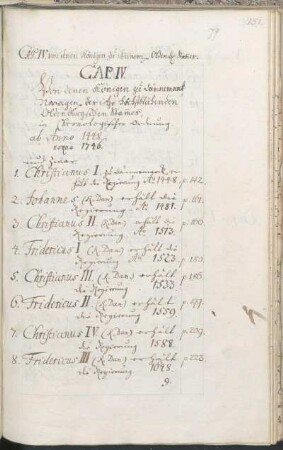 79
Cap. IV von denen Königen zu Dennem. Oldenb. Stamm.
CAP. IV.
Von denen Königen zu Dennemark
Norwegen, der
Oldenburgischen Stammes,
in Chronologischer Ordnung.
ab Anno 1448.
usque 1746.
und zwar
1. Christianus I. zu Dännemarck er-
hält die Regierung Aº 1448. p. 142.
2. Johannes (K. Dan) erhält die p. 161.
Regierung Aº 1481.
3. Christianus II (K. Dan) erhält die p. 166.
Regierung Aº 1513.
4. Fridericus I (K. Dan) erhält die
Regierung Aº 1523. p. 180.
5. Christianus III (K. Dan) erhält p. 186.
die Regierung 1533
6. Fridericus II (K. Dan) erhält p. 197.
die Regierung 1559.
7. Christianus IV (K. Dan) erhält p. 209.
die Regierung 1588.
8. Fridericus III (K. Dan) erhält p. 223.
die Regierung 1648.
9.